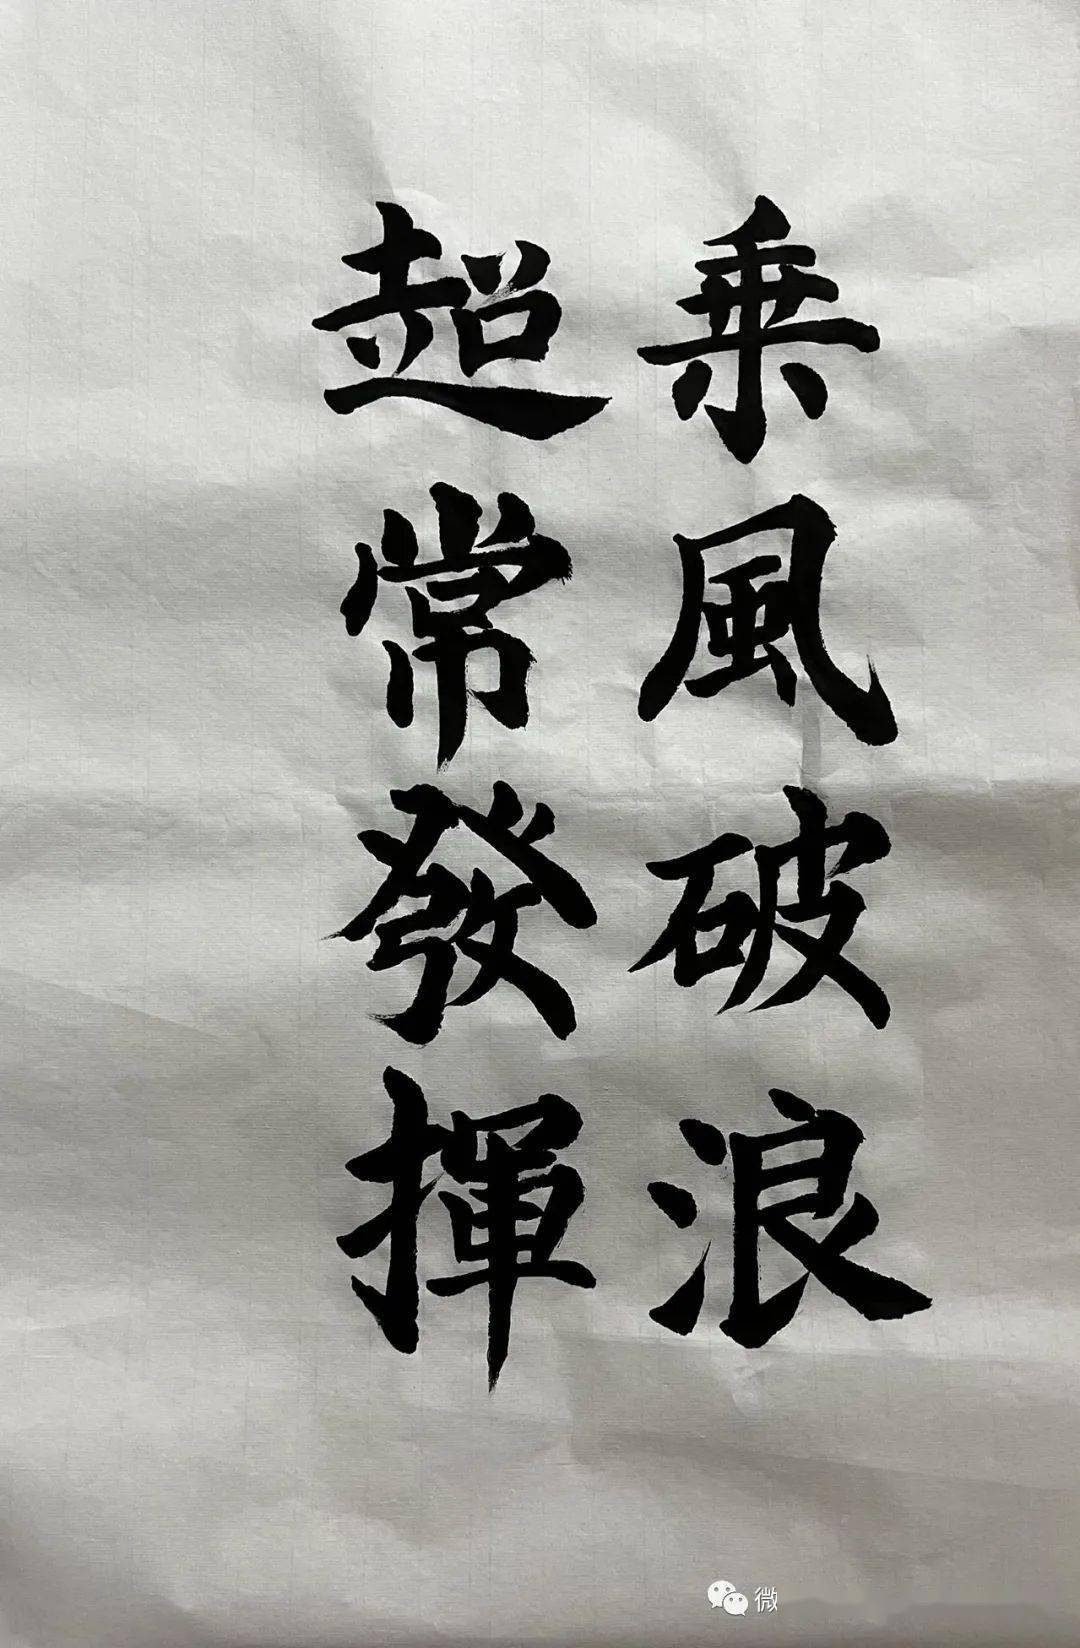 乗風破浪
超常發揮
微